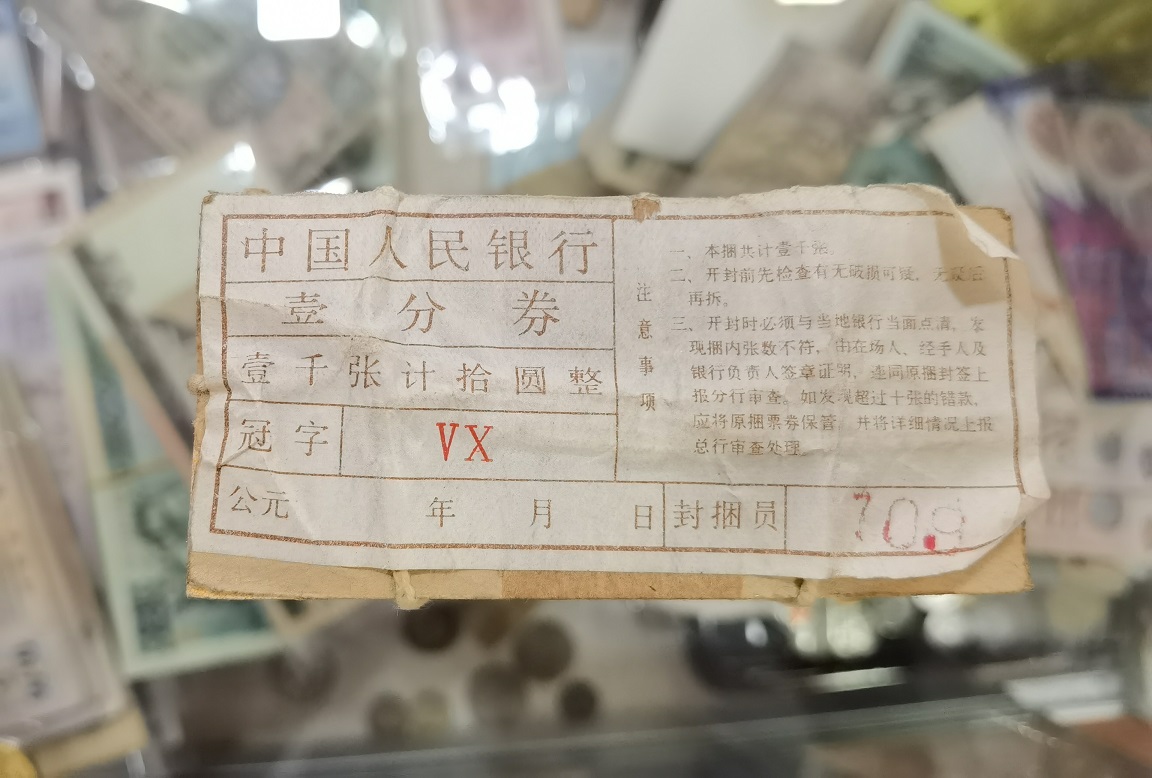 中国人民银行
壹分券
壹千张计拾圆整
冠字 VX
公元 年 月 日 封捆员 709
注意事项
一、本捆共计壹千张。
二、开封前先检查有无破损可疑，无疑后
再拆。
三、开封时必须与当地银行当面点清，发
现捆内张数不符，由在场人、经手人及
银行负责人签章证明，连同原捆封签上
报分行审查。如发现超过十张的错款，
应将原捆票券保管，并将详细情况上报
总行审查处理。